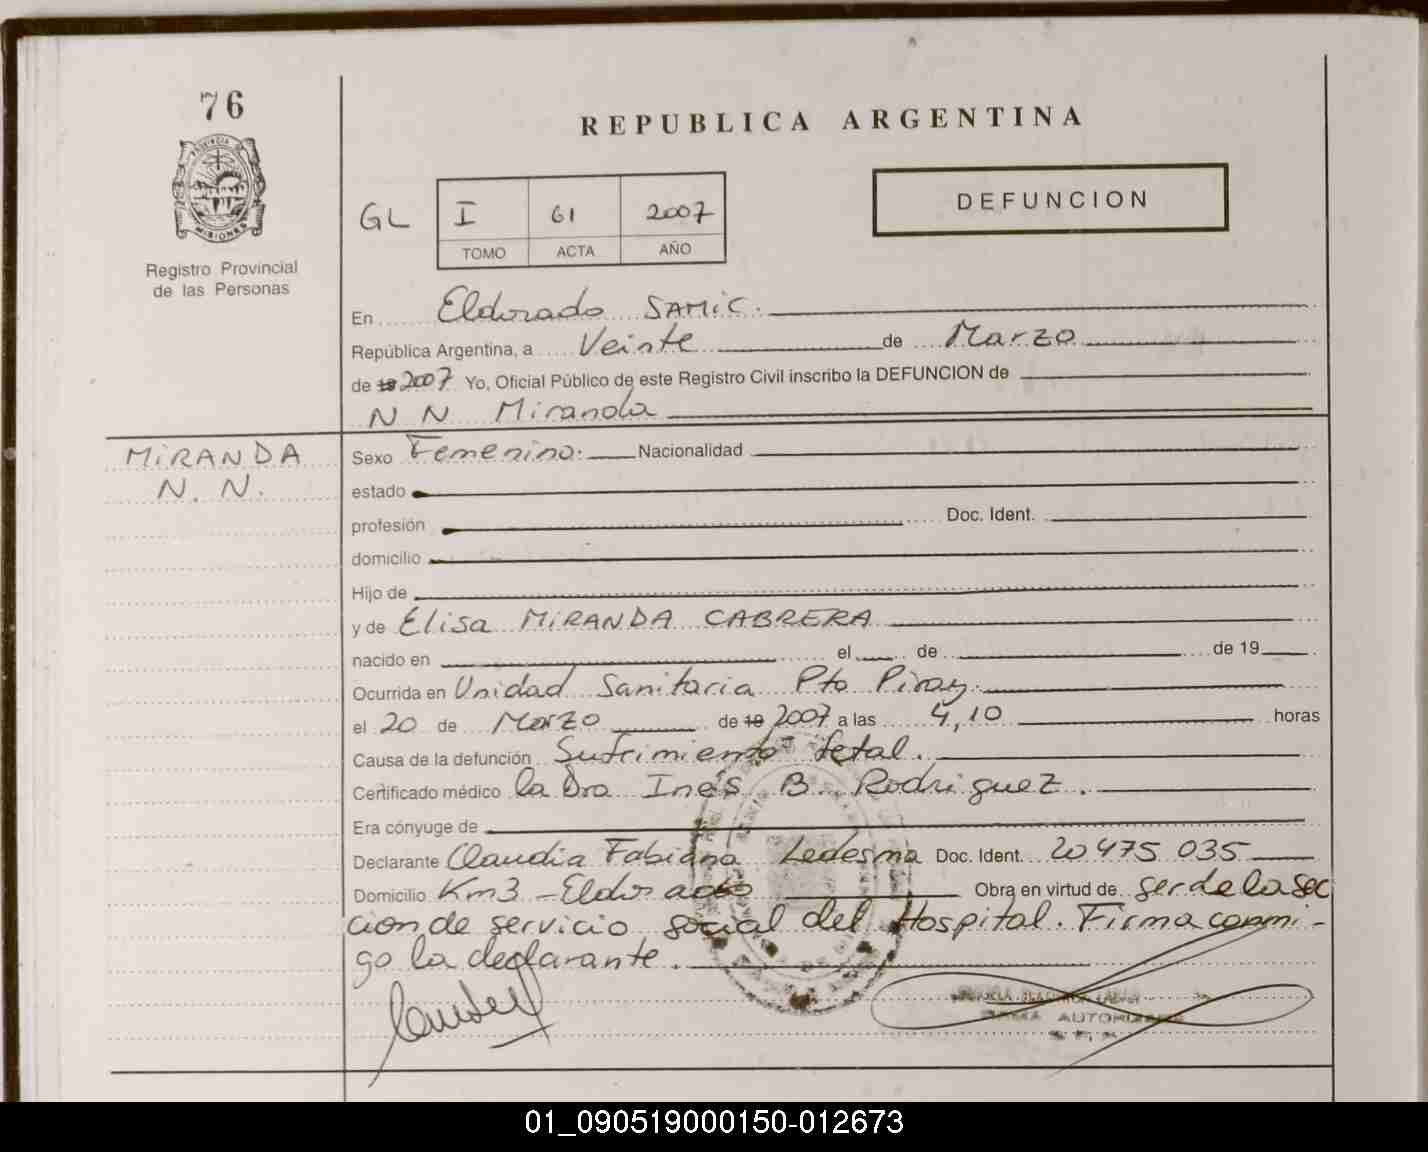 76
REPUBLICA ARGENTINA
DEFUNCION
GL I 61 2007
TOMO ACTA AÑO
PROVINCIA DE
MISIONES
Registro Provincial
de las Personas
En Eldorado SAMiC.
República Argentina, a Veinte de Marzo
de 19 2007 Yo, Oficial Público de este Registro Civil inscribo la DEFUNCION de
N N Miranda
MiRANDA
N. N.
Sexo Femenino. Nacionalidad
estado
profesión Doc. Ident.
domicilio
Hijo de
y de Elisa MiRANDA CABRERA
nacido en el de de 19
Ocurrida en Unidad Sanitaria Pto Piray.
el 20 de Marzo de 19 2007 a las 4,10 horas
Causa de la defunción Sufrimiento fetal.
Certificado médico la Dra Inés B. Rodriguez.
Era cónyuge de
Declarante Claudia Fabiana Ledesma Doc. Ident. 20 475 035
Domicilio Km3 - Eldorado Obra en virtud de ser de la sec
cion de servicio social del Hospital. Firma conmi-
go la declarante.
AUTORIZADA
01_090519000150-012673